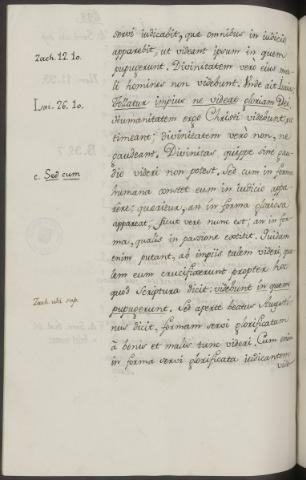 servi iudicabit, quæ omnibus in iudicio
Zach. 12. 10. apparebit, ut videant ipsum in quem
pupugerunt. Divinitatem vero eius ma-
li homines non videbunt. Unde ait Isaias
Isai. 26. 10. Tollatur impius ne videat gloriam Dei.
Humanitatem ergo Christi videbunt, ut
timeant; divinitatem vero non, ne
gaudeant. Divinitas quippe sine gau-
dio videri non potest. Sed cum in forma
c. Sed cum humana constet eum in iudicio appa-
rere: quæritur, an in forma gloriosa
appareat, sicut vere nunc est; an in for-
ma, qualis in passione extitit. Quidam
enim putant, ab impiis talem videri, qua-
lem eum crucifixerunt propter hoc
Zach. ubi sup. quod Scriptura dicit: videbunt in quem
pupugerunt. Sed aperit beatus Augusti-
nus dicit, formam servi glorificatam
à bonis et malis tunc videri. Cum enim
in forma servi glorificata iudicantem
vide-